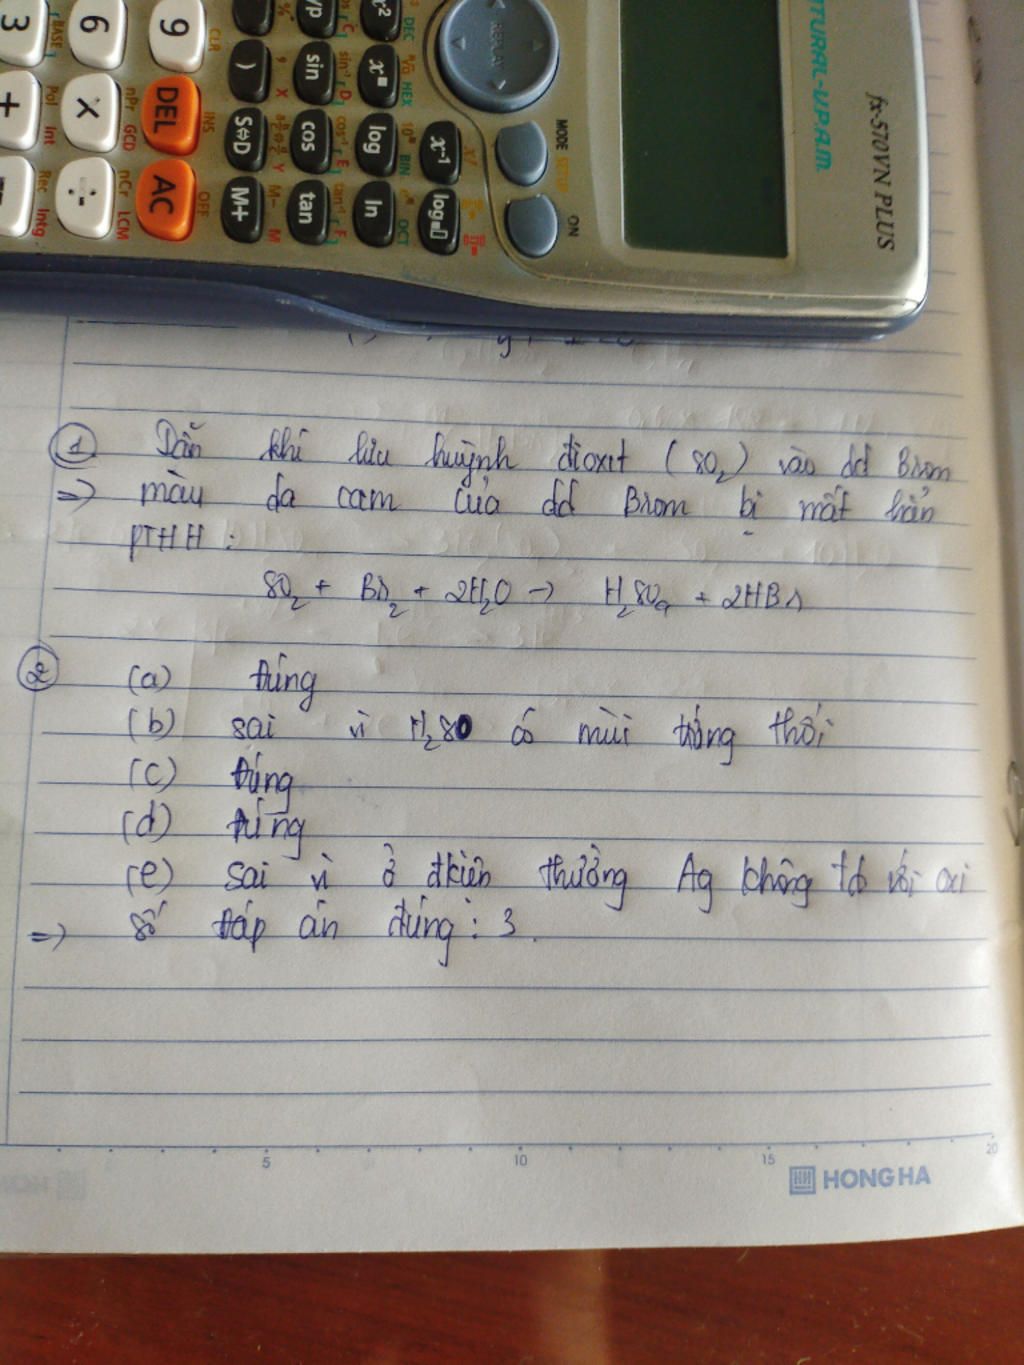 NATURAL-V.P.A.M.
fx-570VN PLUS
① Dẫn khí lưu huỳnh đioxit (SO₂) vào dd Brom
=> màu da cam của dd Brom bị mất hẳn
PTHH :
SO₂ + Br₂ + 2H₂O → H₂SO₄ + 2HBr
② (a) đúng
(b) sai vì H₂SO có mùi trứng thối
(c) đúng
(d) đúng
(e) sai vì ở đkiện thường Ag không td với oxi
=> số đáp án đúng : 3.
5 10 15 20
HONG HA
REPLAY
MODE SETUP
ON
x⁻¹
log
ln
sin
cos
tan
S⇔D
M+
DEL
AC
9
6
3
×
÷
+